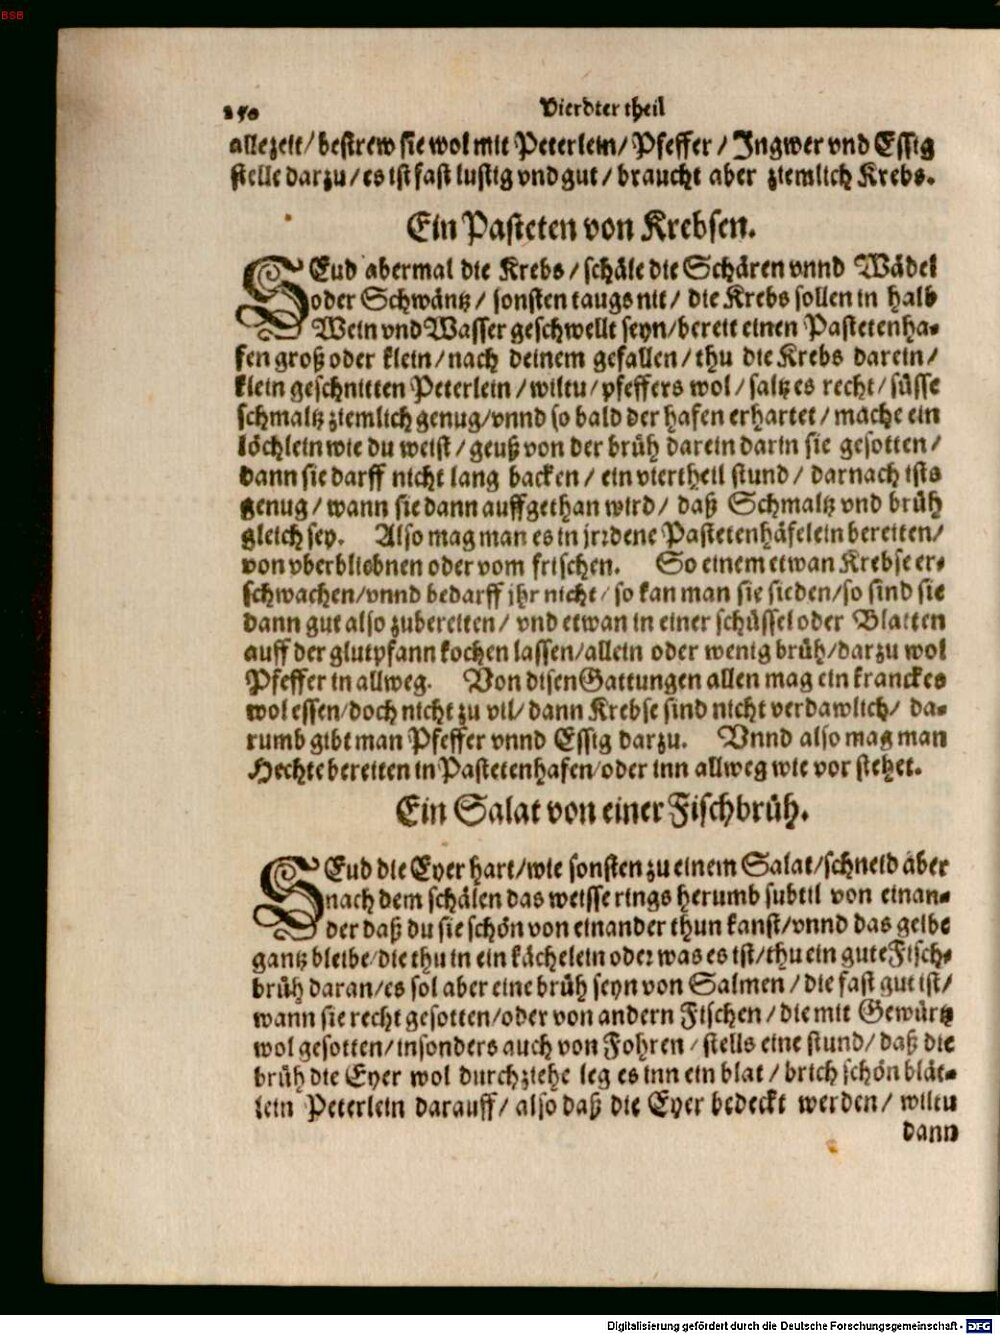 BSB
250
Vierdter theil
allezeit / bestrew sie wol mit Peterlein / Pfeffer / Ingwer vnd Essig
stelle darzu / es ist fast lustig vnd gut / braucht aber ziemlich Krebs.
Ein Pasteten von Krebsen.
SEud abermal die Krebs / schäle die Schären vnnd Wädel
oder Schwäntz / sonsten taugs nit / die Krebs sollen in halb
Wein vnd Wasser geschwellt seyn / bereit einen Pastetenha-
fen groß oder klein / nach deinem gefallen / thu die Krebs darein /
klein geschnitten Peterlein / wiltu / pfeffers wol / saltz es recht / süsse
schmaltz ziemlich genug / vnnd so bald der hafen erhartet / mache ein
löchlein wie du weist / geuß von der brüh darein darin sie gesotten /
dann sie darff nicht lang backen / ein viertheil stund / darnach ists
genug / wann sie dann auffgethan wird / daß Schmaltz vnd brüh
gleich sey. Also mag man es in jrrdene Pastetenhäfelein bereiten /
von vberbliebnen oder vom frischen. So einem etwan Krebse er-
schwachen / vnnd bedarff jhr nicht / so kan man sie sieden / so sind sie
dann gut also zubereiten / vnd etwan in einer schüssel oder Blatten
auff der glutpfann kochen lassen / allein oder wenig brüh / darzu wol
Pfeffer in allweg. Von disen Gattungen allen mag ein kranckes
wol essen / doch nicht zu vil / dann Krebse sind nicht verdawlich / da-
rumb gibt man Pfeffer vnnd Essig darzu. Vnnd also mag man
Hechte bereiten in Pastetenhafen / oder inn allweg wie vor stehet.
Ein Salat von einer Fischbrüh.
SEud die Eyer hart / wie sonsten zu einem Salat / schneid aber
nach dem schälen das weisse rings herumb subtil von einan-
der daß du sie schön von einander thun kanst / vnnd das gelbe
gantz bleibe / die thu in ein kächelein oder was es ist / thu ein gute Fisch-
brüh daran / es sol aber eine brüh seyn von Salmen / die fast gut ist /
wann sie recht gesotten / oder von andern Fischen / die mit Gewürtz
wol gesotten / insonders auch von Fohren / stells eine stund / daß die
brüh die Eyer wol durchziehe leg es inn ein blat / brich schön blät-
lein Peterlein darauff / also daß die Eyer bedeckt werden / wiltu
dann
Digitalisierung gefördert durch die Deutsche Forschungsgemeinschaft - DFG